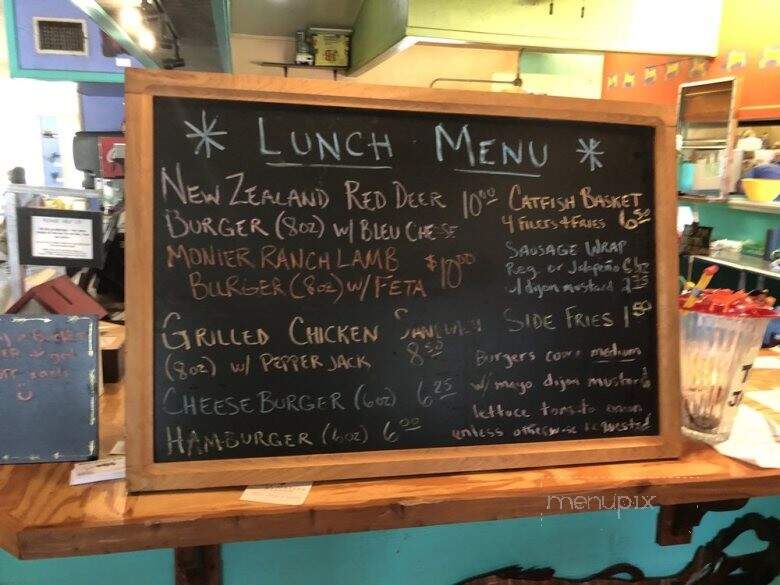 * LUNCH MENU *
NEW ZEALAND RED DEER 10.00
BURGER (8oz) w/ BLEU CHEESE
MONIER RANCH LAMB $10.00
BURGER (8oz) w/ FETA
GRILLED CHICKEN SANDWICH
(8oz) w/ PEPPER JACK 8.50
CHEESEBURGER (6oz) 6.25
HAMBURGER (6oz) 6.00
CATFISH BASKET
4 FILETS + FRIES 6.50
SAUSAGE WRAP
Reg. or Jalapeño
w/ dijon mustard
SIDE FRIES 1.50
Burgers come medium
w/ mayo dijon mustard
lettuce tomato onion
unless otherwise requested
menupix